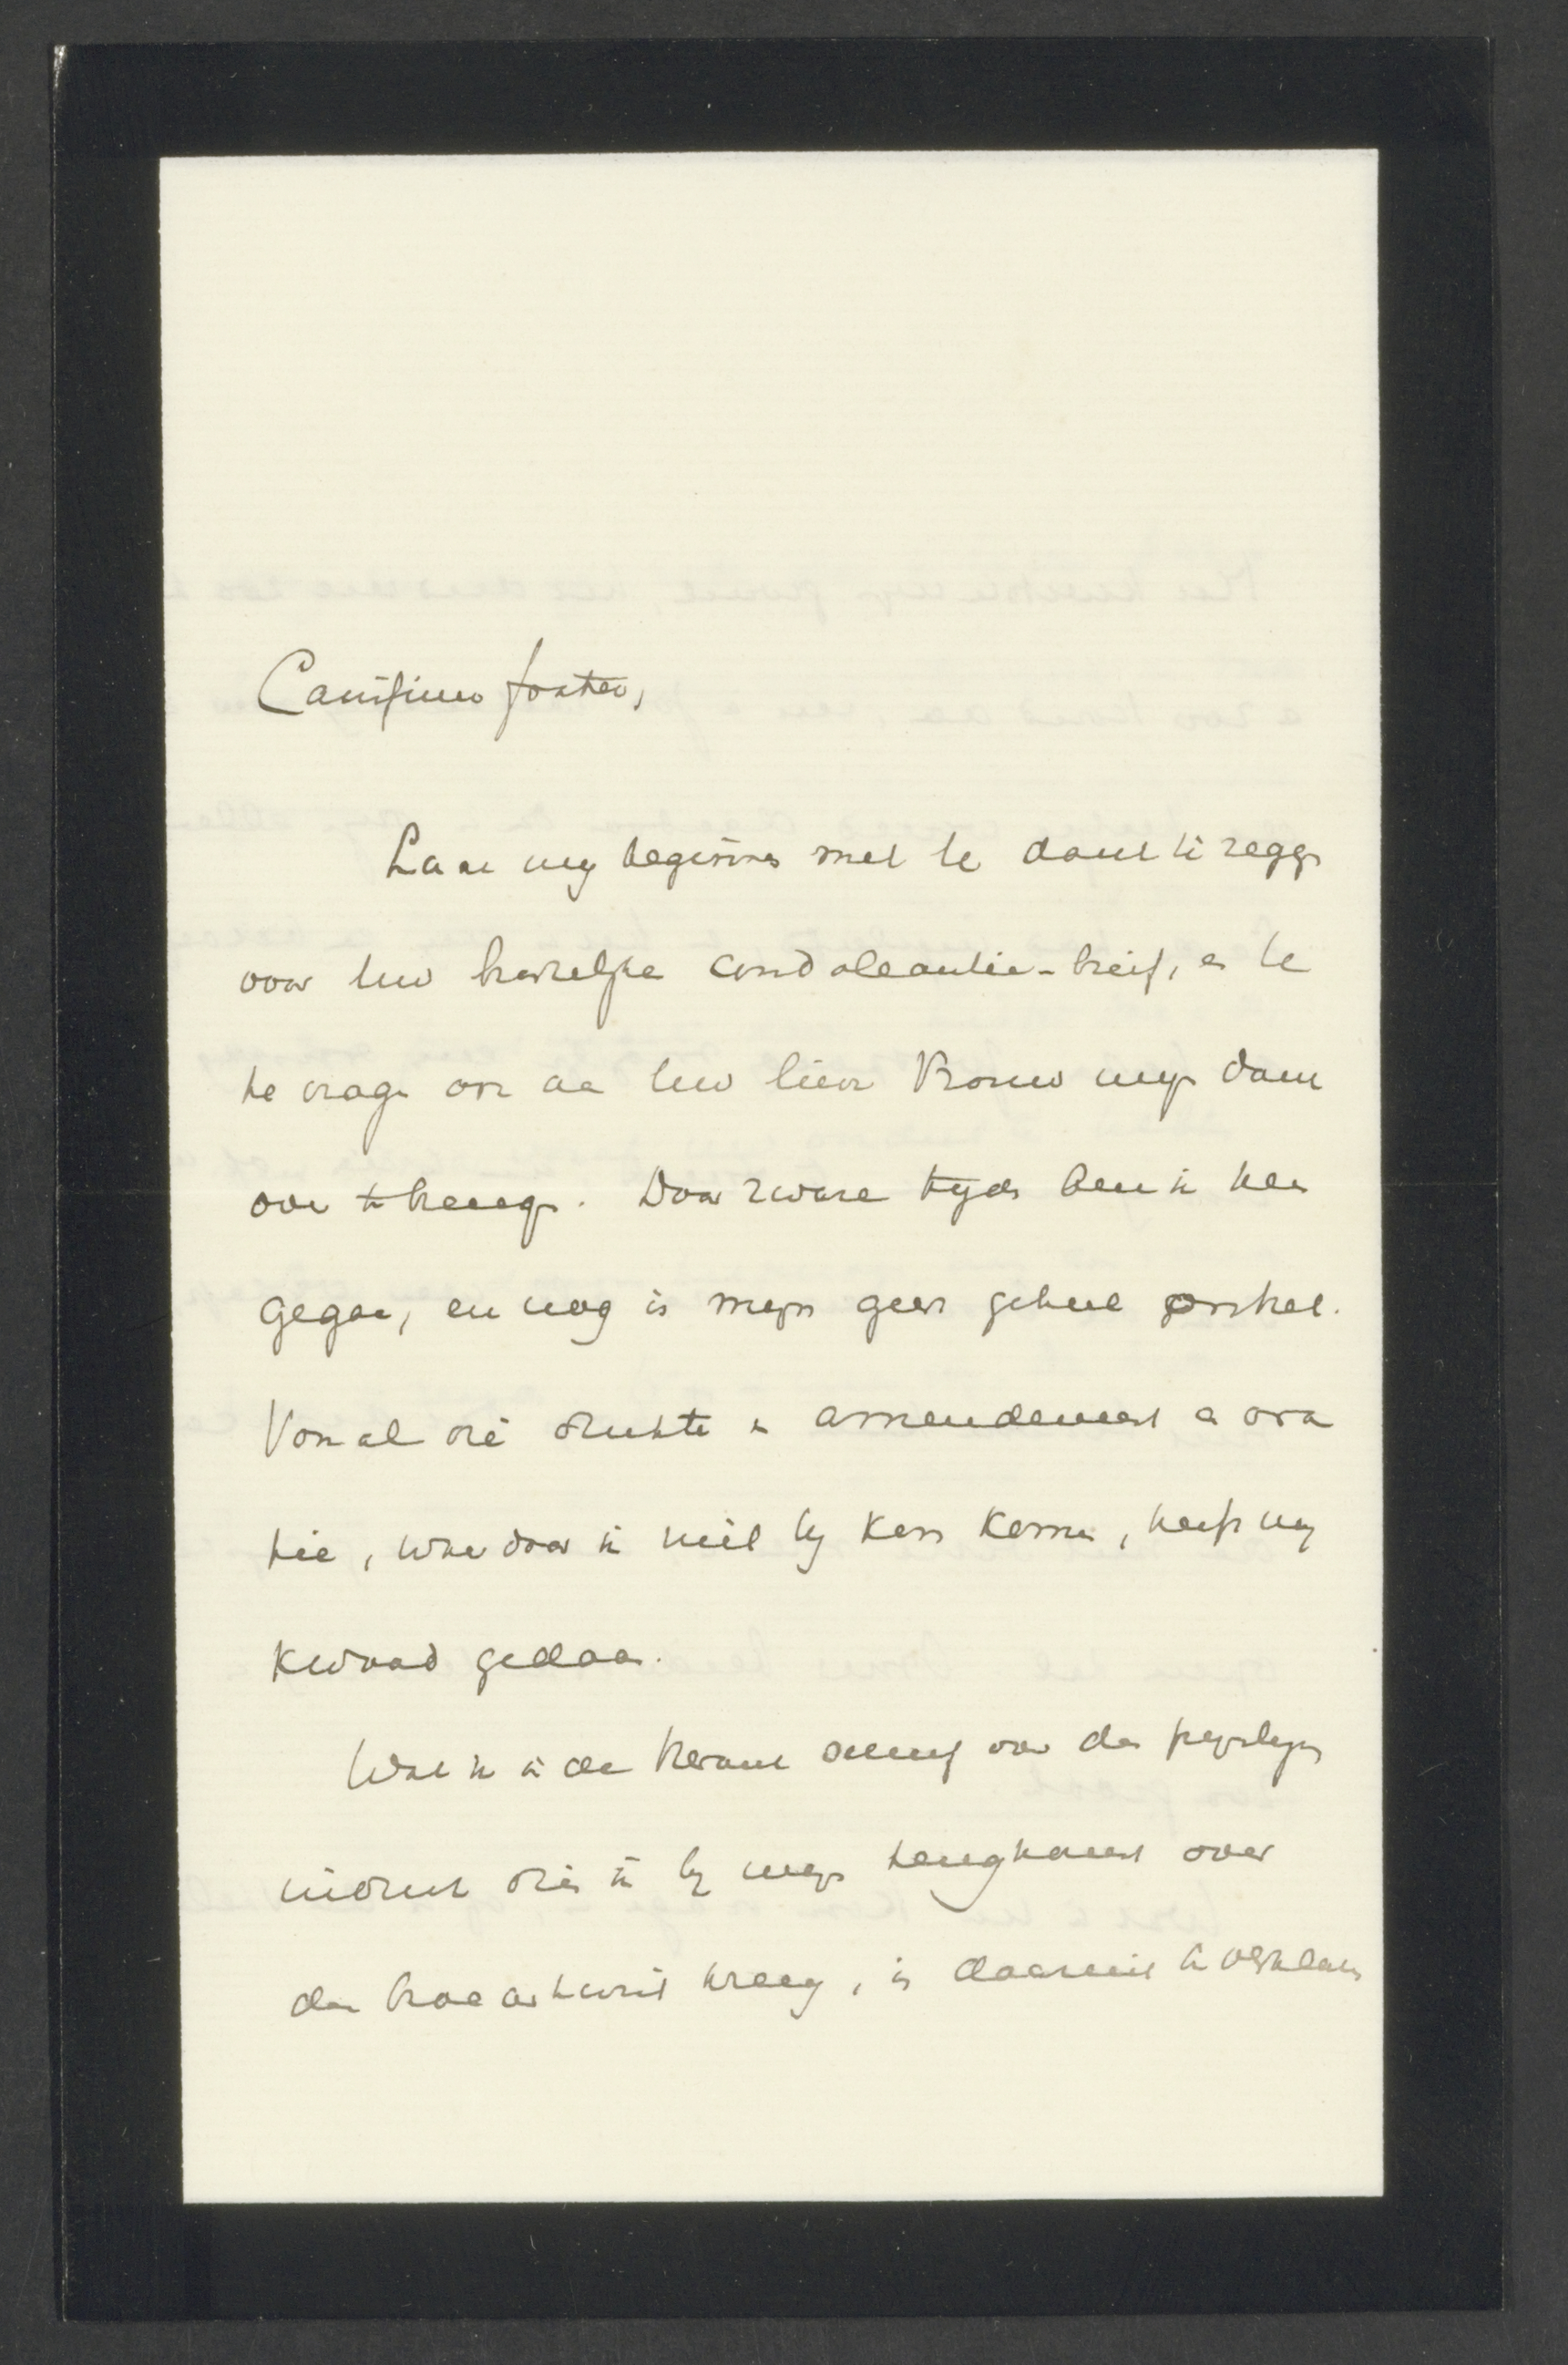 Carissimo frater,
Laat mij beginnen met U dank te zeggen
voor Uw hartelijke condoleantie-brief, en U
te vragen om aan Uw lieve Vrouw mijn dank
over te brengen. Door zware tijden ben ik heen
gegaan, en nog is mijn geest geheel
Van al die drukte en amendement en ova
tie, waardoor ik niet bij kon komen, heeft mij
kwaad gedaan.
Wat ik in de krant schreef over den pijnlijken
indruk dien ik bij mijn terugkomst over
den kreeg, is daaruit te verklaren